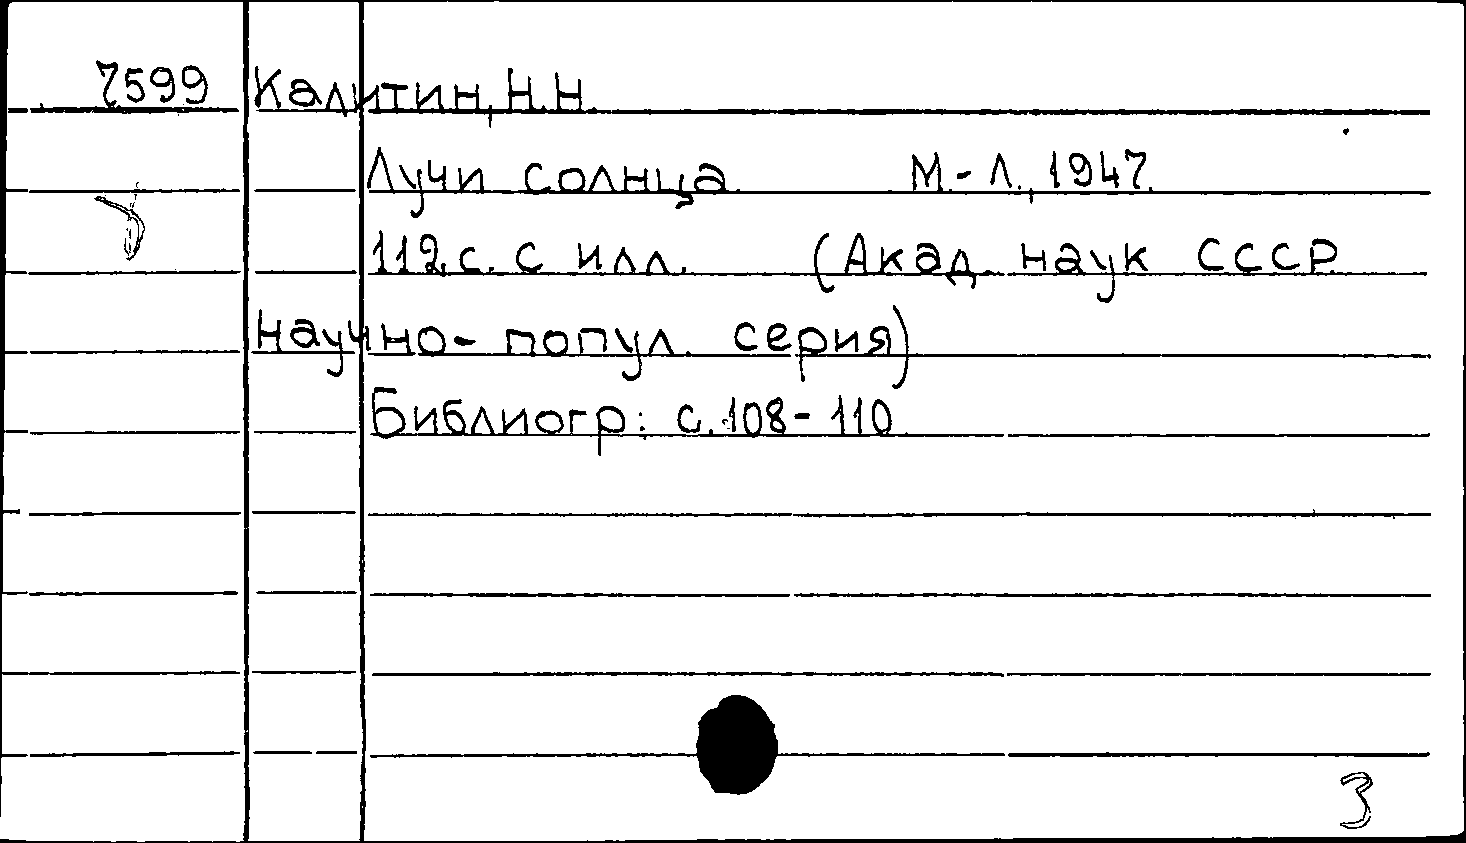 7599 Калитин, Н.Н.
Лучи солнца М.-Л., 1947.
112 с. с илл. (Акад. наук СССР
научно-попул. серия)
Библиогр: с. 108-110
3